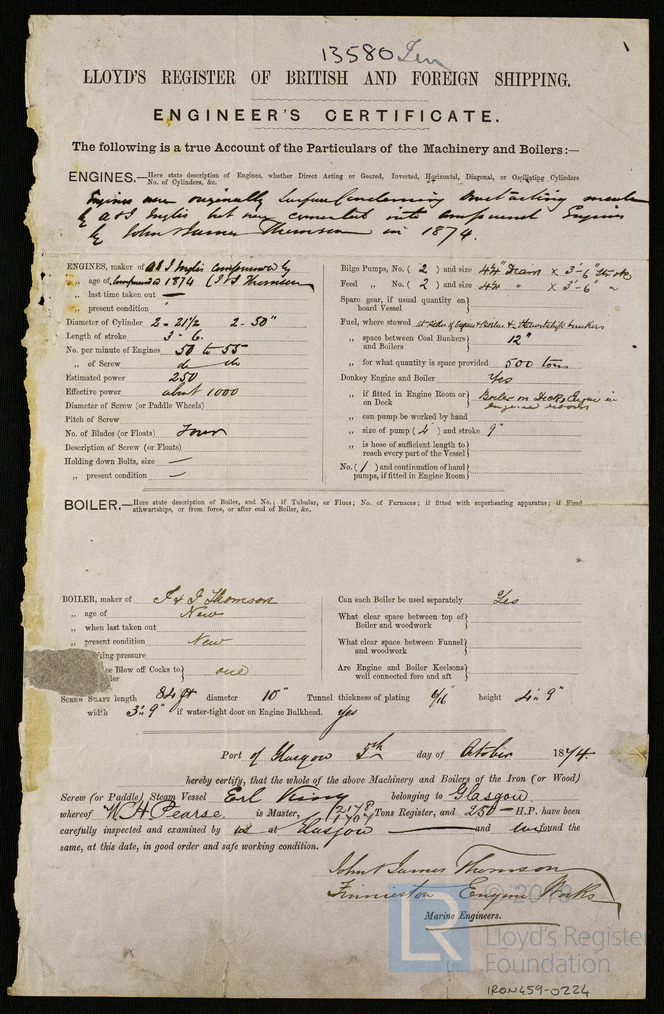 13580 Iron
LLOYD'S REGISTER OF BRITISH AND FOREIGN SHIPPING.
ENGINEER'S CERTIFICATE.
The following is a true Account of the Particulars of the Machinery and Boilers:—
ENGINES.—Here state description of Engines, whether Direct Acting or Geared, Inverted, Horizontal, Diagonal, or Oscillating Cylinders
No. of Cylinders, &c.
Engines were originally Surface Condensing Direct acting made
by A & J Inglis but were converted into compound Engines
by John & James Thomson in 1874.
ENGINES, maker of A & J Inglis compounded by
„ age of Compound 1874 (J & J Thomson
„ last time taken out —
„ present condition
Diameter of Cylinder 2 - 21½ 2 - 50"
Length of stroke 3 - 6.
No. per minute of Engines 50 to 55
„ of Screw do do
Estimated power 250
Effective power about 1000
Diameter of Screw (or Paddle Wheels)
Pitch of Screw
No. of Blades (or Floats) Four
Description of Screw (or Floats)
Holding down Bolts, size —
„ present condition —
Bilge Pumps, No. ( 2 ) and size 4¼" Diam × 3'-6" Stroke
Feed „ No. ( 2 ) and size 4¼ " × 3'-6" "
Spare gear, if usual quantity on board Vessel
Fuel, where stowed at sides of Engines & Boilers & thwartship bunkers
„ space between Coal Bunkers and Boilers 12"
„ for what quantity is space provided 500 tons
Donkey Engine and Boiler Yes
„ if fitted in Engine Room or on Deck Boiler on Deck Engine in engine room
„ can pump be worked by hand
„ size of pump ( 4 ) and stroke 9"
„ is hose of sufficient length to reach every part of the Vessel
No. ( 1 ) and continuation of hand pumps, if fitted in Engine Room
BOILER.—Here state description of Boiler, and No.; if Tubular, or Flues; No. of Furnaces; if fitted with superheating apparatus; if Fired
athwartships, or from force, or after end of Boiler, &c.
BOILER, maker of J & J Thomson
„ age of New
„ when last taken out
„ present condition New
king pressure
ee Blow off Cocks to ler one
Can each Boiler be used separately Yes
What clear space between top of Boiler and woodwork
What clear space between Funnel and woodwork
Are Engine and Boiler Keelsons well connected fore and aft
SCREW SHAFT length 84 ft diameter 10" Tunnel thickness of plating 6/16 height 4'.. 9"
width 3'.. 9" if water-tight door on Engine Bulkhead. Yes
Port of Glasgow 5th day of October 1874.
hereby certify, that the whole of the above Machinery and Boilers of the Iron (or Wood)
Screw (or Paddle) Steam Vessel Erl King belonging to Glasgow
whereof W H Pearse. is Master, 2178 1707 Tons Register, and 250 — H.P. have been
carefully inspected and examined by us at Glasgow and found the
same, at this date, in good order and safe working condition.
John & James Thomson
Finnieston Engine Works
Marine Engineers.
LR
© 2019
Lloyd's Register
Foundation
IRON459-0224